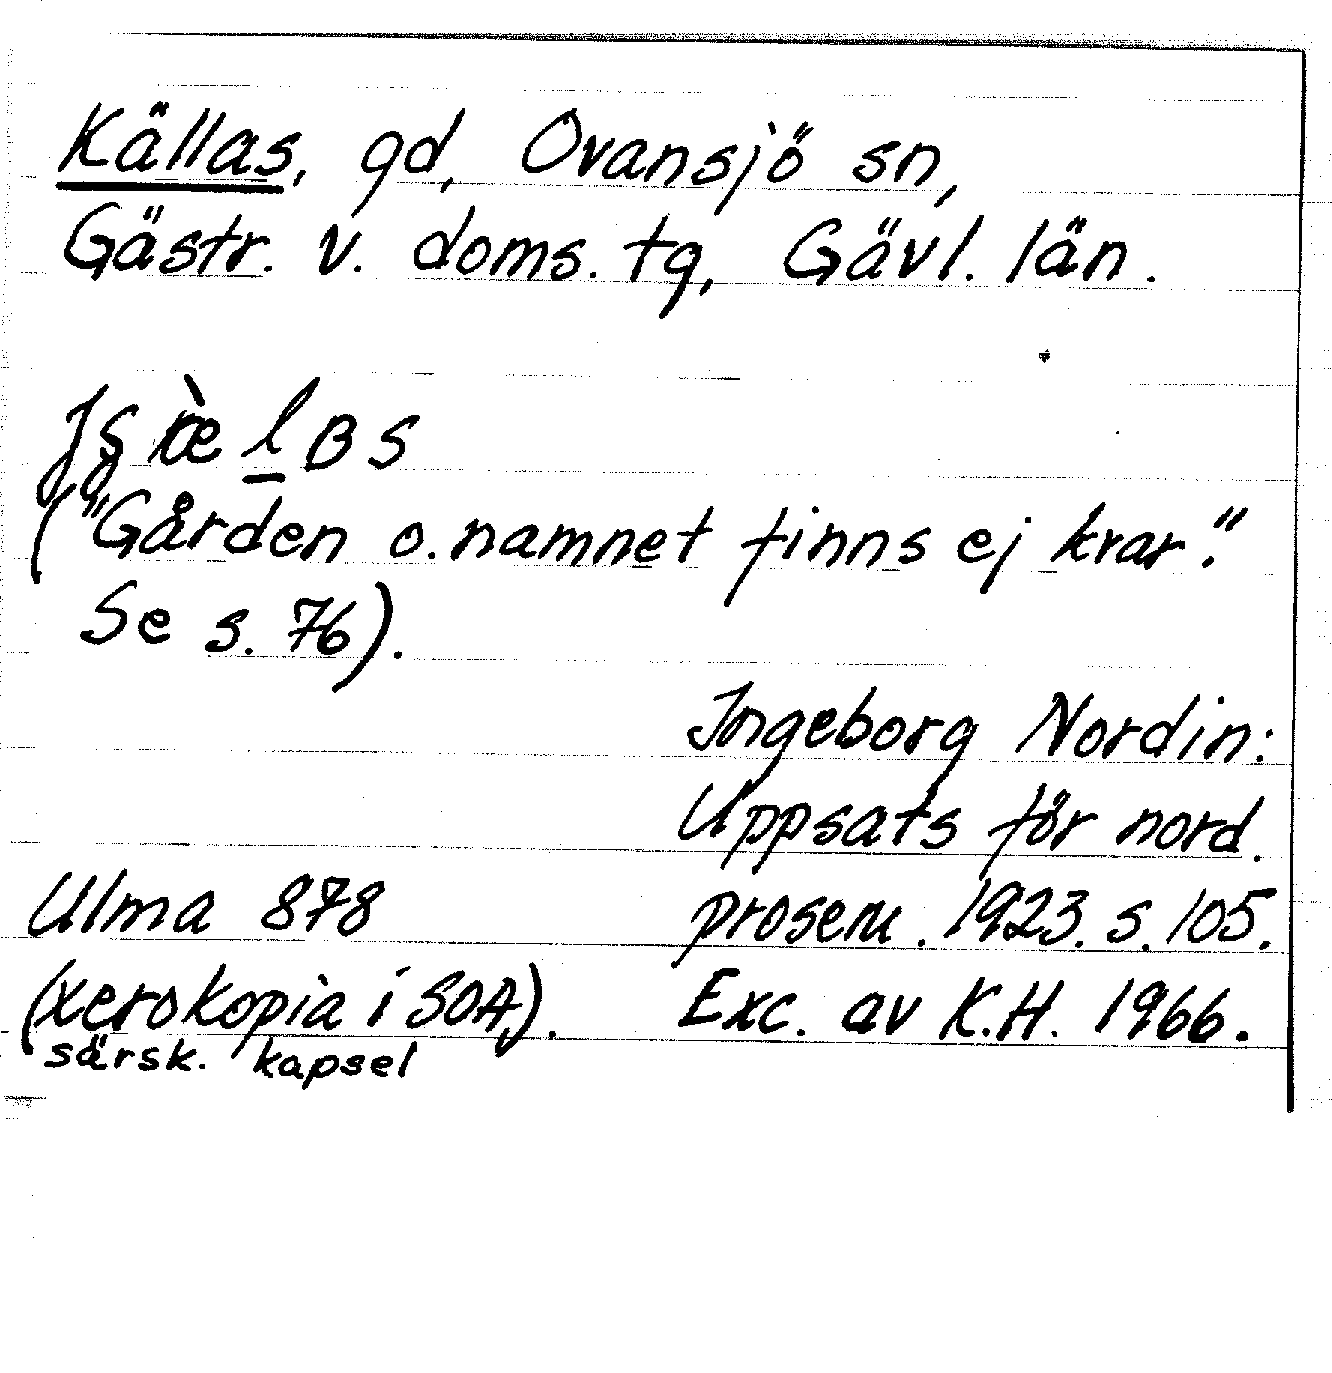 Källas, gd, Ovansjö sn,
Gästr. v. doms. tg, Gävl. län.
("Gården o. namnet finns ej kvar."
Se s. 76).
Ingeborg Nordin:
Uppsats för nord.
Ulma 878 prosem. 1923. s. 105.
(xerokopia i SOA). Exc. av K.H. 1966.
särsk. kapsel